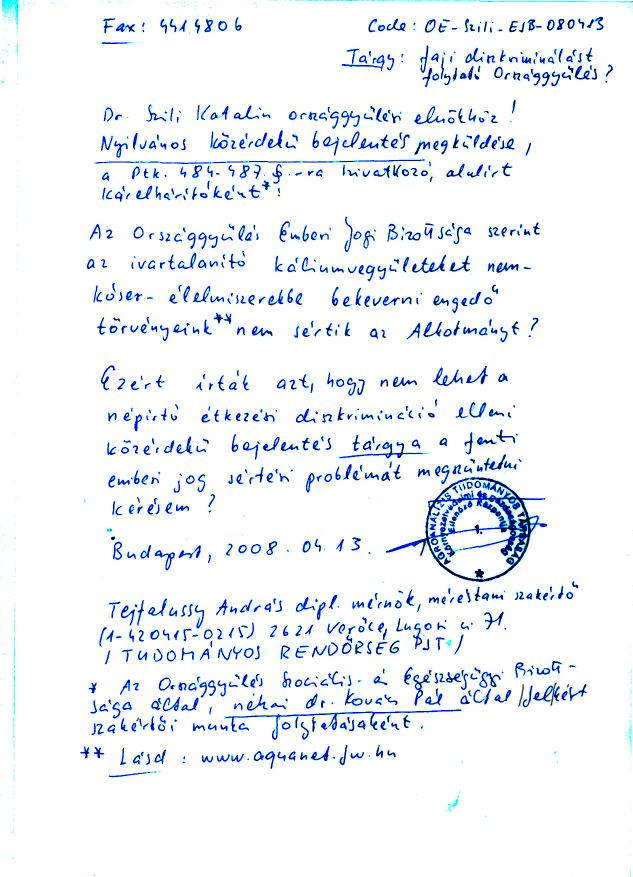 Fax: 4414806 Code: OE-Szili-EJB-080413
Tárgy: faji diszkriminálást
folytató Országgyülés?
Dr. Szili Katalin országgyülési elnökhöz!
Nyilvános közérdekü bejelentés megküldése,
a Ptk. 484-487.§.-ra hivatkozó, alulírt
kárelhárítóként*!
Az Országgyülés Emberi Jogi Bizottsága szerint
az ivartalanító káliumvegyületeket nem-
kóser- élelmiszerekbe bekeverni engedő
törvényeink** nem sértik az Alkotmányt?
Ezért írták azt, hogy nem lehet a
népirtó étkezési diszkrimináció elleni
közérdekü bejelentés tárgya a fenti
emberi jog sértési problémát megszüntetni
kérésem?
Budapest, 2008.04.13.
AGROANALÍZIS TUDOMÁNYOS TÁRSASÁG
Környezetvédelmi és
Ellenőrző Központja
1.
*
Tejfalussy András dipl. mérnök, méréstani szakértő
(1-420415-0215) 2621 Verőce, Lugosi u. 71.
/TUDOMÁNYOS RENDŐRSÉG PJT/
* Az Országgyülés Szociális- és Egészségügyi Bizott-
sága által, néhai dr. Kovács Pál által felkért
szakértői munka folytatásaként.
** Lásd: www.aquanet.fw.hu